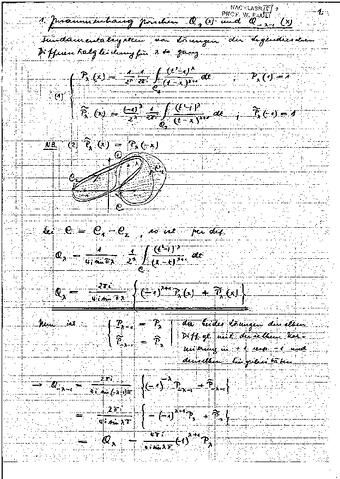 1.
NACHLASS
PROF. W. PAULI
1. Zusammenhang zwischen Q_λ(x) und Q_{-λ-1}(x)
Fundamentalsystem von Lösungen der Legendreschen
Differentialgleichung für λ ≠ ganz
(1) { P_λ(x) = 1/2^λ 1/2πi ∫ (t²-1)^λ/(t-x)^{λ+1} dt ; P_λ(1) = 1
P̃_λ(x) = (-1)^λ/2^λ 1/2πi ∫ (t²-1)^λ/(t-x)^{λ+1} dt ; P̃_λ(-1) = 1
NB. (2) P̃_λ(x) = P_λ(-x)
bei C = C₁ - C₂, so ist per def.
Q_λ = 1/(4i sin πλ) 1/2^λ ∫ (t²-1)^λ/(x-t)^{λ+1} dt
Q_λ = 2πi/(4i sin πλ) { (-1)^{λ+1} P_λ(x) + P̃_λ(x) }
Nun ist: { P_{-λ-1} = P_λ
P̃_{-λ-1} = P̃_λ
da beides Lösungen derselben
Diffgl. mit derselben Nor-
mierung in +1 resp. -1 und
denselben Singularitäten.
→ Q_{-λ-1} = 2πi/(4i sin(-λ-1)π) { (-1)^{-λ} P_{-λ-1} + P̃_{-λ-1} }
= 2πi/(4i sin λπ) { -(-1)^{λ+1} P_λ + P̃_λ }
= Q_λ - 4πi/(4i sin λπ) (-1)^{λ+1} P_λ